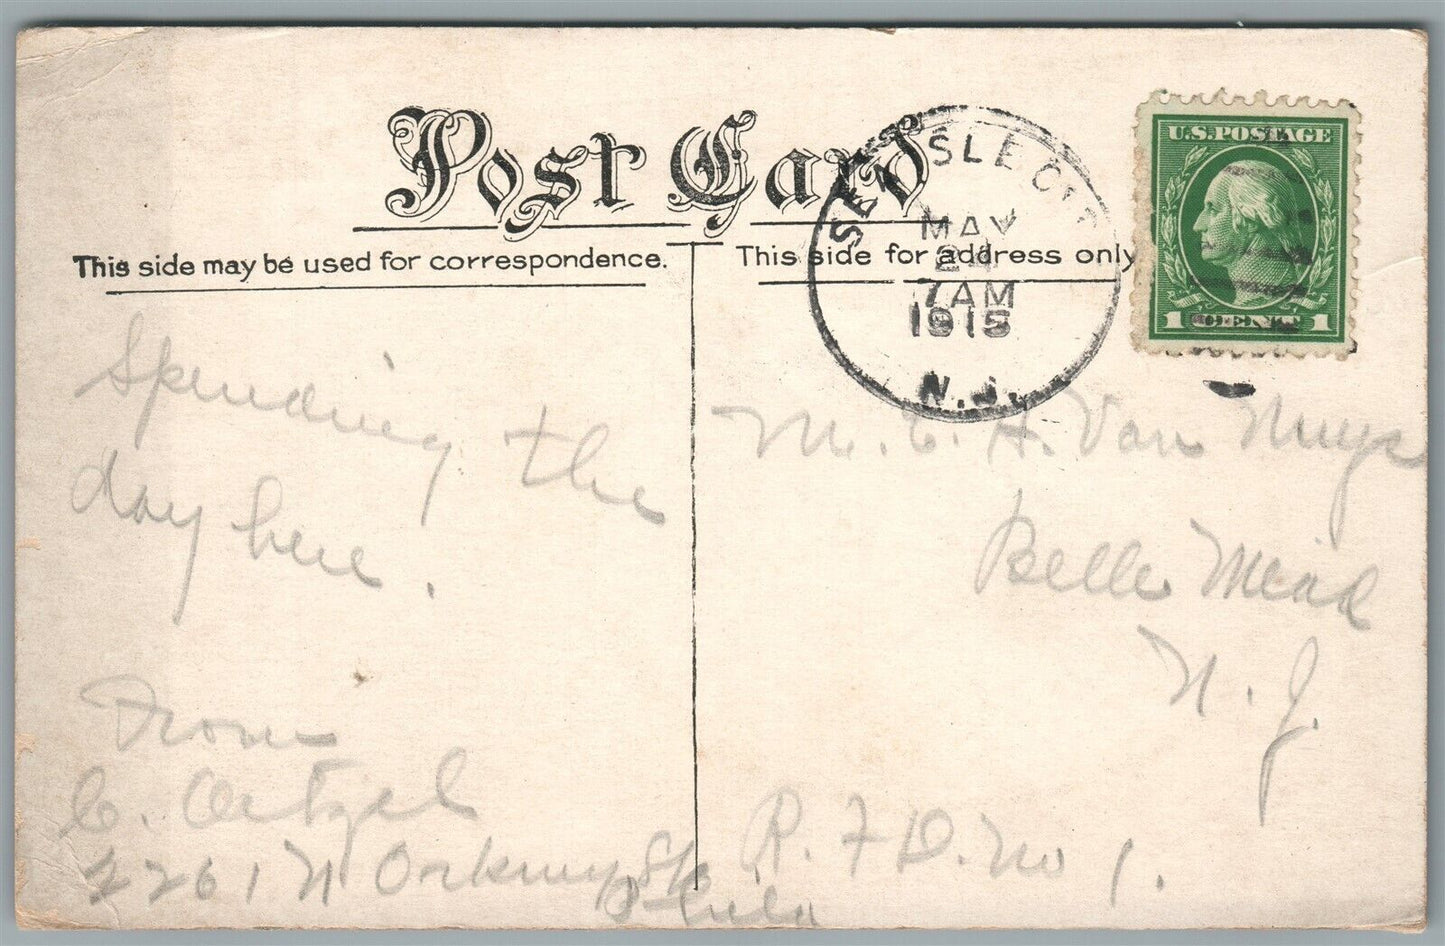 Post Card
This side may be used for correspondence.
This side for address only
SEA ISLE CIT
MAY
24
7 AM
1915
N.J.
U.S. POSTAGE
1 CENT 1
Spending the
day here.
From
C. Oetzel
2261 N Orkney St
Phila
M. C. H. Van Nuys
Belle Mead
N. J.
R. F D. No 1.